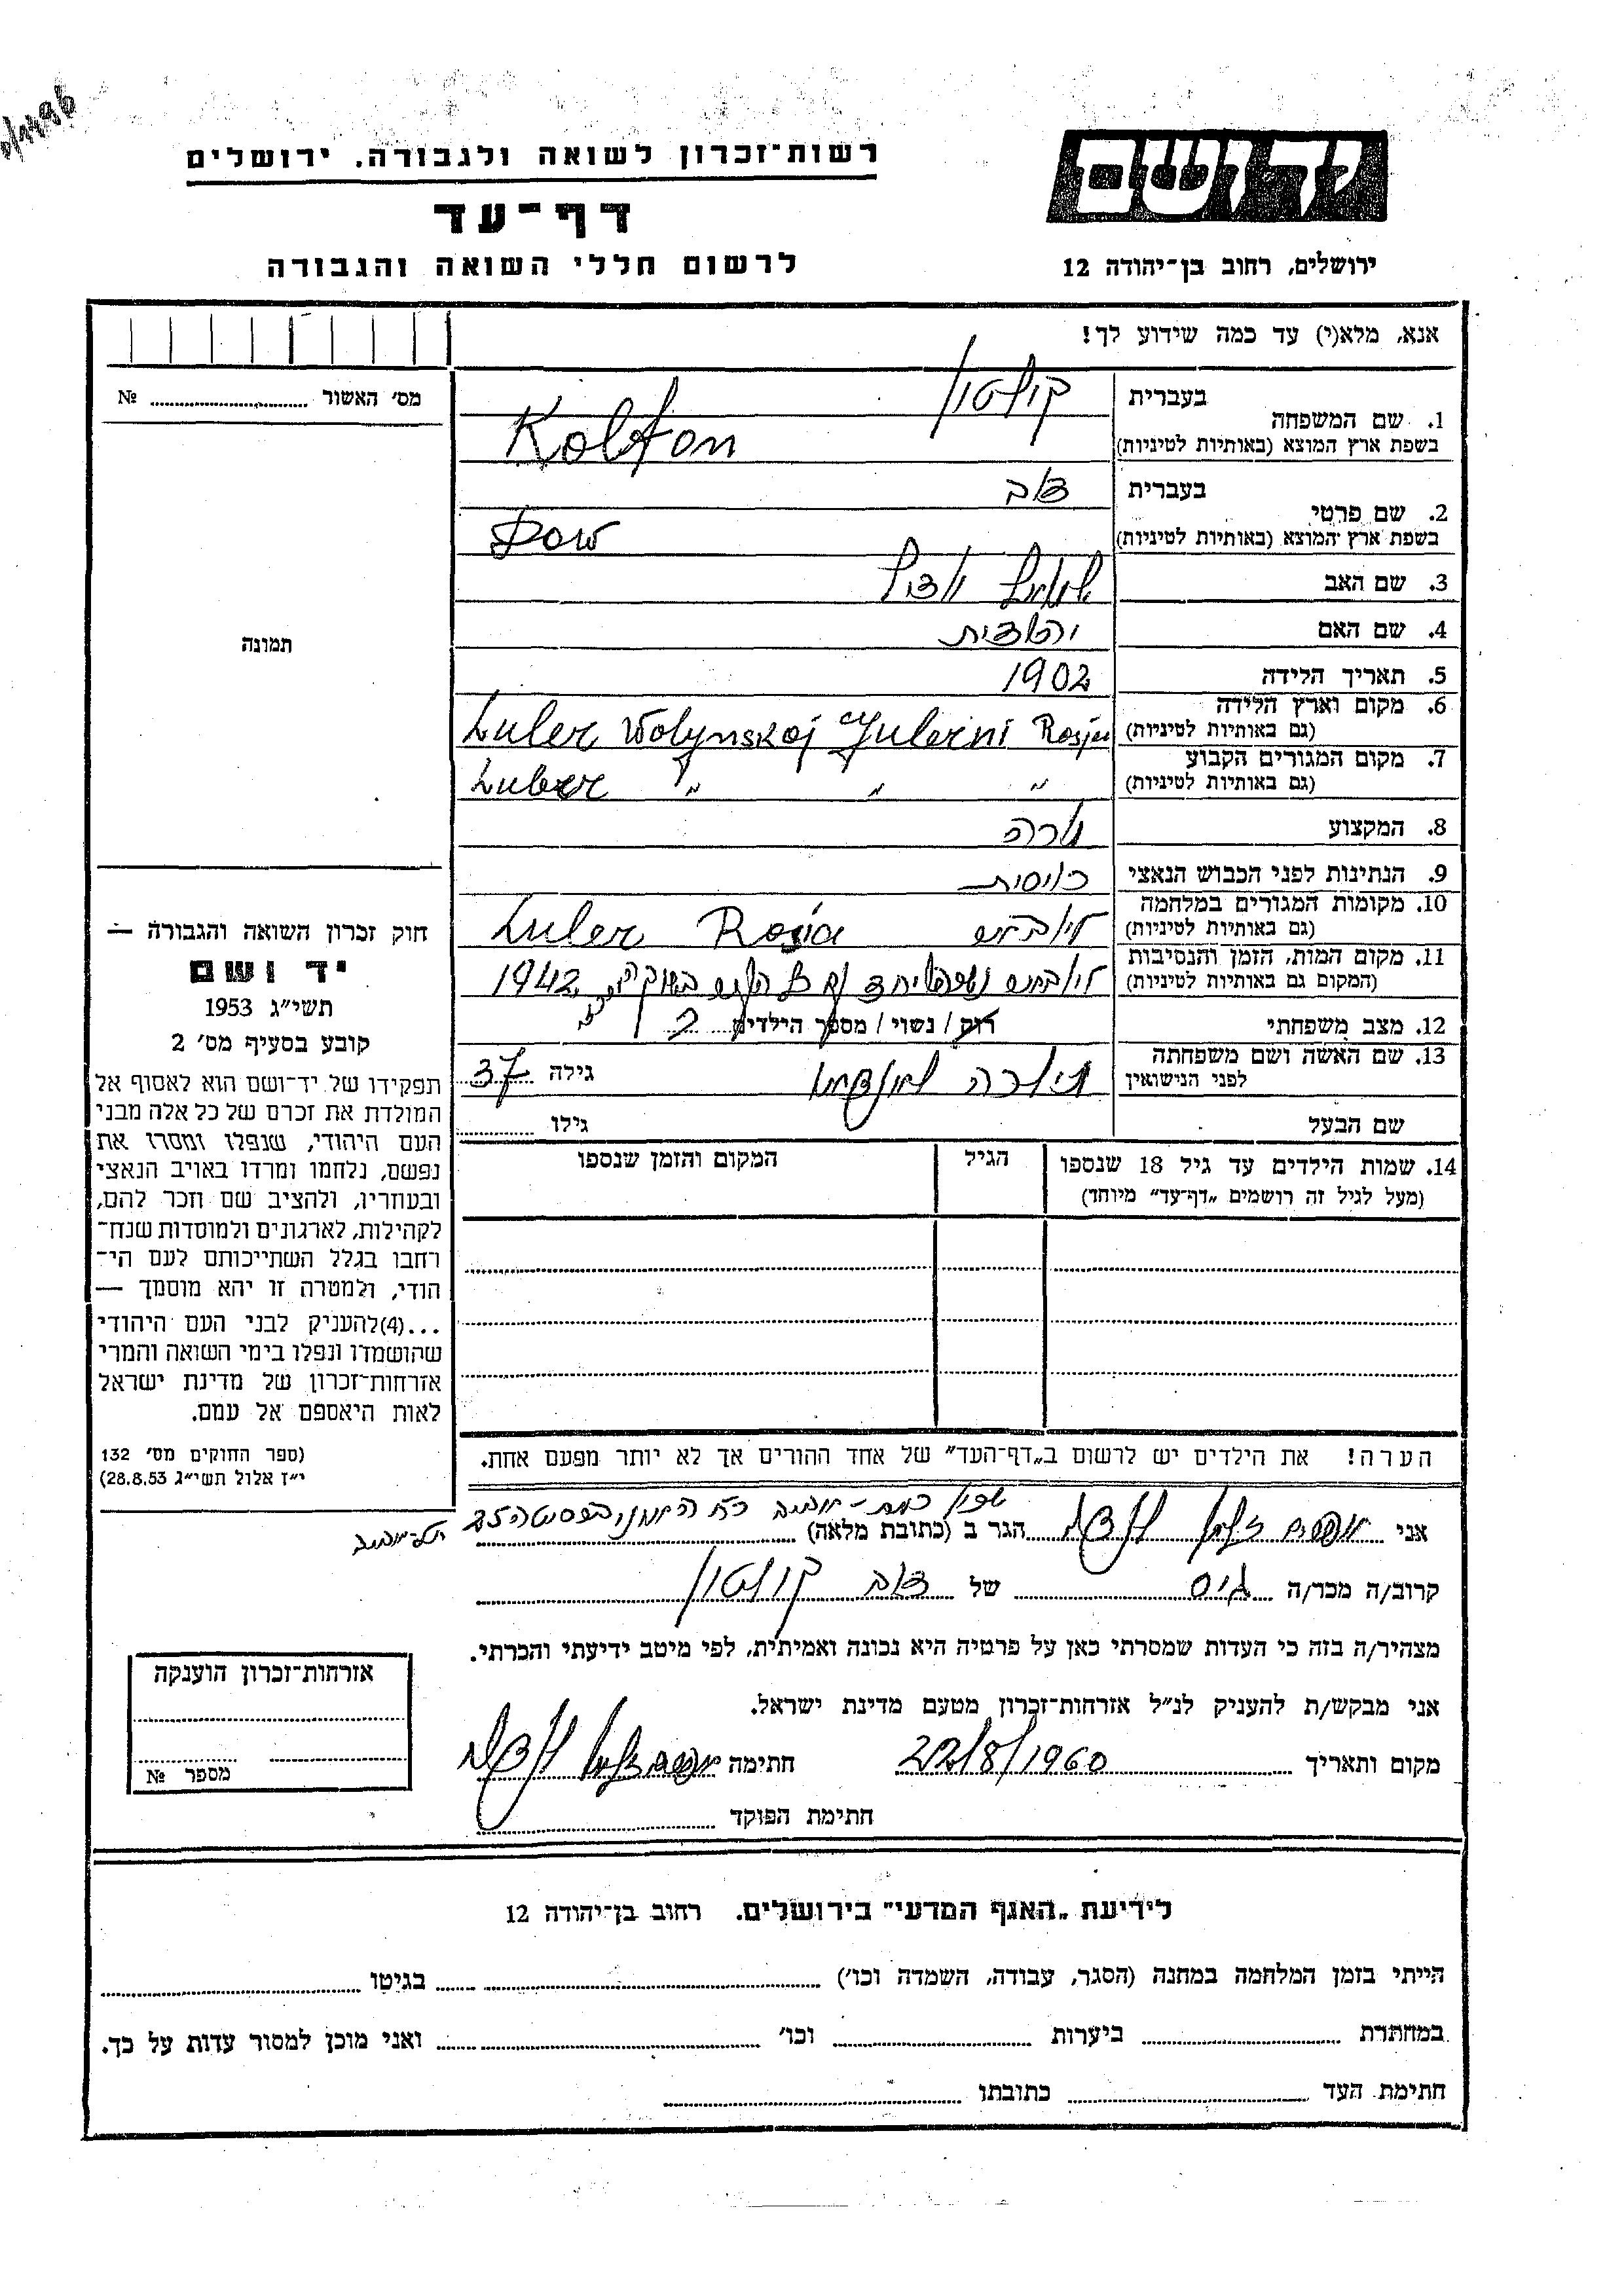 יד ושם
ירושלים, רחוב בן־יהודה 12
רשות־זכרון לשואה ולגבורה. ירושלים
דף־עד
לרשום חללי השואה והגבורה
אנא, מלא(י) עד כמה שידוע לך!
1. שם המשפחה
בעברית קולטון
בשפת ארץ המוצא (באותיות לטיניות) Kolton
2. שם פרטי
בעברית דוב
בשפת ארץ המוצא (באותיות לטיניות) Dow
3. שם האב
4. שם האם
5. תאריך הלידה 1902
6. מקום וארץ הלידה
(גם באותיות לטיניות) Luber Wolynskoj Rosja
7. מקום המגורים הקבוע
(גם באותיות לטיניות) Luber " " "
8. המקצוע מורה
9. הנתינות לפני הכבוש הנאצי רוסית
10. מקומות המגורים במלחמה
(גם באותיות לטיניות) Luber Rosia
11. מקום המות, הזמן והנסיבות
(המקום גם באותיות לטיניות) 1942
12. מצב משפחתי רוק / נשוי / מספר הילדים 2
13. שם האשה ושם משפחתה
לפני הנישואין גילה 37
שם הבעל גילו
14. שמות הילדים עד גיל 18 שנספו הגיל המקום והזמן שנספו
(מעל לגיל זה רושמים „דף־עד״ מיוחד)
הערה! את הילדים יש לרשום ב„דף־העד״ של אחד ההורים אך לא יותר מפעם אחת.
אני הגר ב (כתובת מלאה)
קרוב/ה מכר/ה גיס של דוב קולטון
מצהיר/ה בזה כי העדות שמסרתי כאן על פרטיה היא נכונה ואמיתית, לפי מיטב ידיעתי והכרתי.
אני מבקש/ת להעניק לנ״ל אזרחות־זכרון מטעם מדינת ישראל.
מקום ותאריך 22/8/1960 חתימה
חתימת הפוקד
מס׳ האשור №
תמונה
חוק זכרון השואה והגבורה —
יד ושם
תשי״ג 1953
קובע בסעיף מס׳ 2
תפקידו של יד־ושם הוא לאסוף אל
המולדת את זכרם של כל אלה מבני
העם היהודי, שנפלו ומסרו את
נפשם, נלחמו ומרדו באויב הנאצי
ובעוזריו, ולהציב שם וזכר להם,
לקהילות, לארגונים ולמוסדות שנח־
רחבו בגלל השתייכותם לעם הי־
הודי, ולמטרה זו יהא מוסמך —
...(4)להעניק לבני העם היהודי
שהושמדו ונפלו בימי השואה והמרי
אזרחות־זכרון של מדינת ישראל
לאות היאספם אל עמם.
(ספר החוקים מס׳ 132
י״ז אלול תשי״ג 28.8.53)
אזרחות־זכרון הוענקה
מספר №
לידיעת „האגף המדעי״ בירושלים. רחוב בן־יהודה 12
הייתי בזמן המלחמה במחנה (הסגר, עבודה, השמדה וכו׳) בגיטו
במחתרת ביערות וכו׳ ואני מוכן למסור עדות על כך.
חתימת העד כתובתו